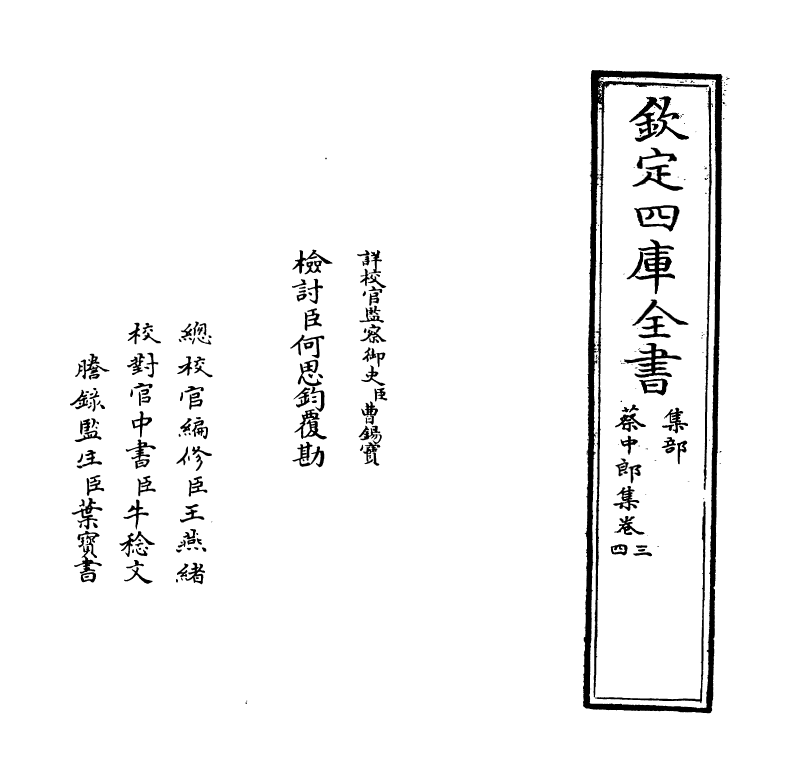 欽定四庫全書
集部
蔡中郎集卷三四
詳校官監察御史臣曹錫寶
檢討臣何思鈞覆勘
總校官編修臣王燕緒
校對官中書臣牛稔文
謄錄監生臣葉寶書